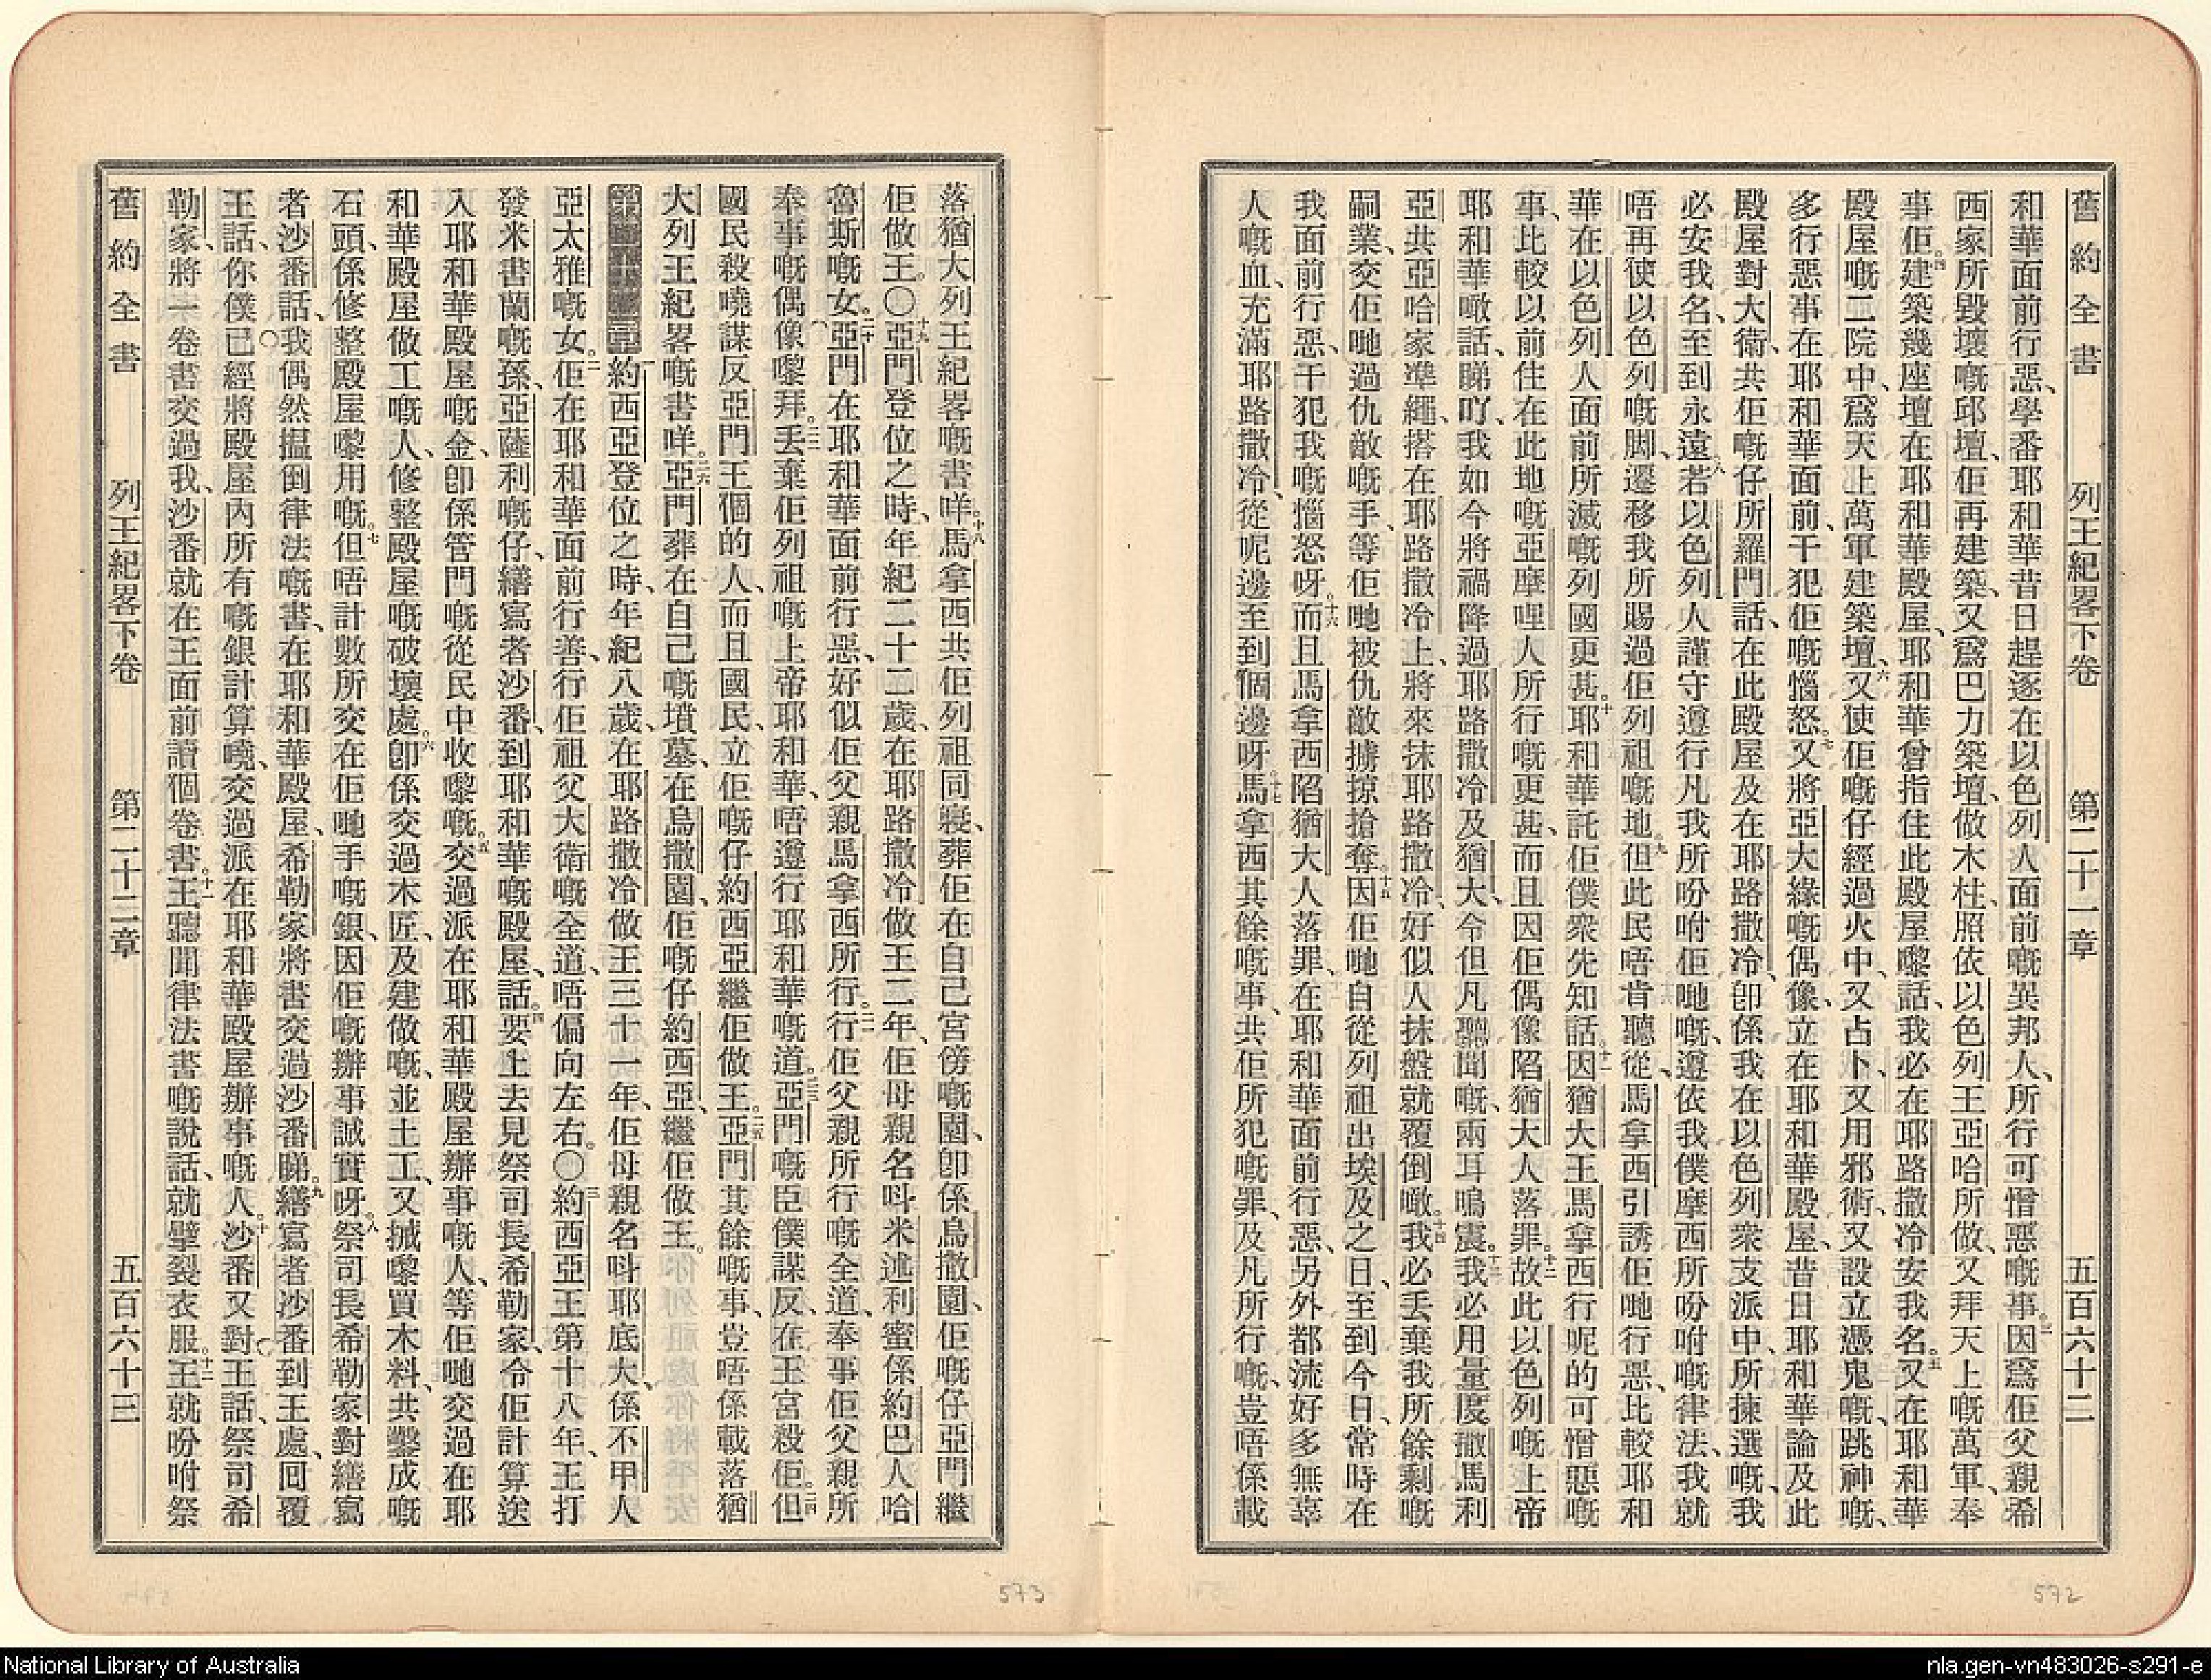 舊約全書　列王紀畧下卷　第二十一章　五百六十二
和華面前行惡、學番耶和華昔日趕逐在以色列人面前嘅異邦人、所行可憎惡嘅事。三因爲佢父親希
西家所毀壞嘅邱壇、佢再建築、又爲巴力築壇、做木柱、照依以色列王亞哈所做、又拜天上嘅萬軍、奉
事佢。四建築幾座壇在耶和華殿屋、耶和華曾指住此殿屋嚟話、我必在耶路撒冷安我名。五又在耶和華
殿屋嘅二院中、爲天上萬軍建築壇、六又使佢嘅仔經過火中、又占卜、又用邪術、又設立憑鬼嘅、跳神嘅、
多行惡事在耶和華面前、干犯佢嘅惱怒。七又將亞大綠嘅偶像、立在耶和華殿屋、昔日耶和華論及此
殿屋對大衛、共佢嘅仔所羅門話、在此殿屋及在耶路撒冷、卽係我在以色列衆支派中、所揀選嘅、我
必安我名、至到永遠、八若以色列人謹守遵行凡我所吩咐佢哋嘅、遵依我僕摩西所吩咐嘅律法、我就
唔再使以色列嘅脚、遷移我所賜過佢列祖嘅地。九但此民唔肯聽從、馬拿西引誘佢哋行惡、比較耶和
華在以色列人面前所滅嘅列國更甚。十耶和華託佢僕衆先知話。十一因猶大王馬拿西行呢的可憎惡嘅
事、比較以前住在此地嘅亞摩哩人所行嘅更甚、而且因佢偶像陷猶大人落罪。十二故此以色列嘅上帝
耶和華噉話、睇吖、我如今將禍降過耶路撒冷及猶大、令但凡聽聞嘅、兩耳鳴震。十三我必用量度撒馬利
亞共亞哈家凖繩、搭在耶路撒冷上、將來抹耶路撒冷、好似人抹盤就覆倒噉。十四我必丟棄我所餘剩嘅
嗣業、交佢哋過仇敵嘅手、等佢哋被仇敵擄掠搶奪。十五因佢哋自從列祖出埃及之日、至到今日、常時在
我面前行惡、干犯我嘅惱怒呀。十六而且馬拿西陷猶大人落罪、在耶和華面前行惡、另外都流好多無辜
人嘅血、充滿耶路撒冷、從呢邊至到個邊呀。十七馬拿西其餘嘅事、共佢所犯嘅罪、及凡所行嘅、豈唔係載
落猶大列王紀畧嘅書咩。十八馬拿西共佢列祖同寢、葬佢在自己宮傍嘅園、卽係烏撒園、佢嘅仔亞門繼
佢做王。〇十九亞門登位之時、年紀二十二歲、在耶路撒冷做王二年、佢母親名呌米述利蜜係約巴人哈
魯斯嘅女。二十亞門在耶和華面前行惡、好似佢父親馬拿西所行。二一行佢父親所行嘅全道、奉事佢父親所
奉事嘅偶像嚟拜。二二丟棄佢列祖嘅上帝耶和華、唔遵行耶和華嘅道。二三亞門嘅臣僕謀反、在王宮殺佢。二四但
國民殺嘵謀反亞門王個的人、而且國民、立佢嘅仔約西亞繼佢做王。二五亞門其餘嘅事、豈唔係載落猶
大列王紀畧嘅書咩。二六亞門葬在自己嘅墳墓、在烏撒園、佢嘅仔約西亞、繼佢做王。
第二十二章　一約西亞登位之時、年紀八歲、在耶路撒冷做王三十一年、佢母親名呌耶底大、係不甲人
亞太雅嘅女。二佢在耶和華面前行善、行佢祖父大衛嘅全道、唔偏向左右。〇三約西亞王第十八年、王打
發米書蘭嘅孫、亞薩利嘅仔、繕寫者沙番、到耶和華嘅殿屋、話。四要上去見祭司長希勒家、令佢計算送
入耶和華殿屋嘅金、卽係管門嘅從民中收嚟嘅。五交過派在耶和華殿屋辦事嘅人、等佢哋交過在耶
和華殿屋做工嘅人、修整殿屋嘅破壞處。六卽係交過木匠、及建做嘅、並土工、又摵嚟買木料、共鑿成嘅
石頭、係修整殿屋嚟用嘅。七但唔計數所交在佢哋手嘅銀、因佢嘅辦事誠實呀。八祭司長希勒家對繕寫
者沙番話、我偶然搵倒律法嘅書、在耶和華殿屋、希勒家將書交過沙番睇。九繕寫者沙番到王處、回覆
王話、你僕已經將殿屋內所有嘅銀計算嘵、交過派在耶和華殿屋辦事嘅人。十沙番又對王話、祭司希
勒家、將一卷書交過我、沙番就在王面前讀個卷書。十一王聽聞律法書嘅說話、就擘裂衣服。十二王就吩咐祭
舊約全書　列王紀畧下卷　第二十二章　五百六十三
573
572
National Library of Australia
nla.gen-vn483026-s291-e